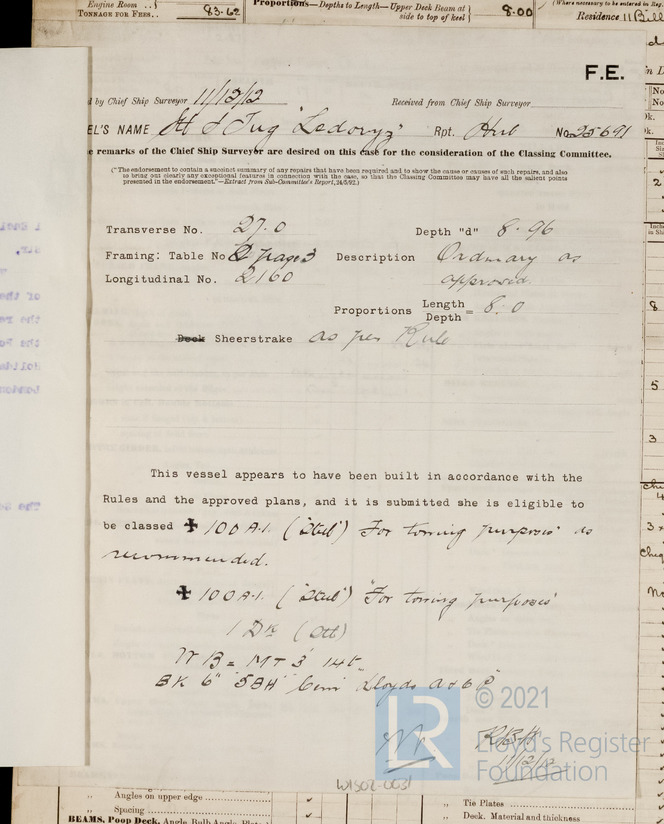 Engine Room
TONNAGE FOR FEES.. 83.62
Proportions—Depths to Length—Upper Deck Beam at side to top of keel 8.00
(Where necessary to be entered in Reg.
Residence 11 Bill
F.E.
d by Chief Ship Surveyor 11/12/12 Received from Chief Ship Surveyor
EL'S NAME St S Tug "Ledovyz" Rpt. Hull No. 25691
e remarks of the Chief Ship Surveyor are desired on this case for the consideration of the Classing Committee.
("The endorsement to contain a succinct summary of any repairs that have been required and to show the cause or causes of such repairs, and also
to bring out clearly any exceptional features in connection with the case, so that the Classing Committee may have all the salient points
presented in the endorsement."—Extract from Sub-Committee's Report, 24/5/92.)
Transverse No. 27.0 Depth "d" 8.96
Framing: Table No 2 page 3 Description Ordinary as
Longitudinal No. 2160 approved.
Proportions Length/Depth = 8.0
Deck Sheerstrake as per Rule
This vessel appears to have been built in accordance with the
Rules and the approved plans, and it is submitted she is eligible to
be classed ✠ 100 A.1. ("Steel") "For towing purposes" as
recommended.
✠ 100 A.1. ("Steel") "For towing purposes"
1 Dk (Stl)
WB = MT 3' 14t
BK 6" 5BH Cem Lloyds A & C P
11/12/12
W1502-0031
© 2021
LR
Lloyd's Register
Foundation
Angles on upper edge
Spacing
BEAMS, Poop Deck, Angle, Bulb Angle, Plate
Tie Plates
Deck. Material and thickness